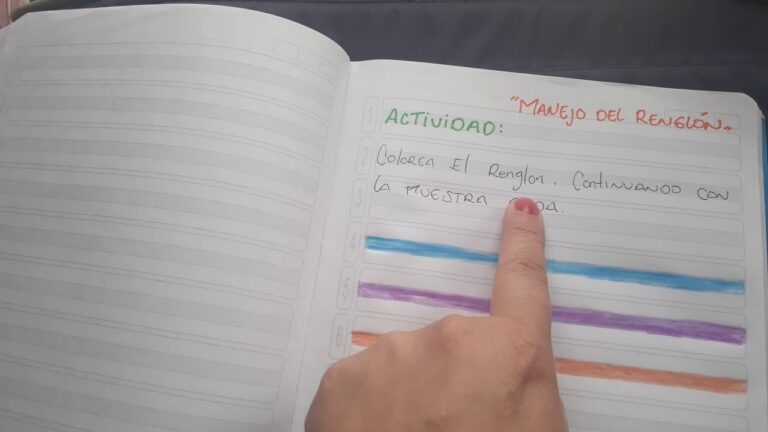 "MANEJO DEL RENGLÓN"
1 ACTIVIDAD:
2 COLOREA El Renglon. CONTINUANDO CON
3 LA MUESTRA
4
5
6